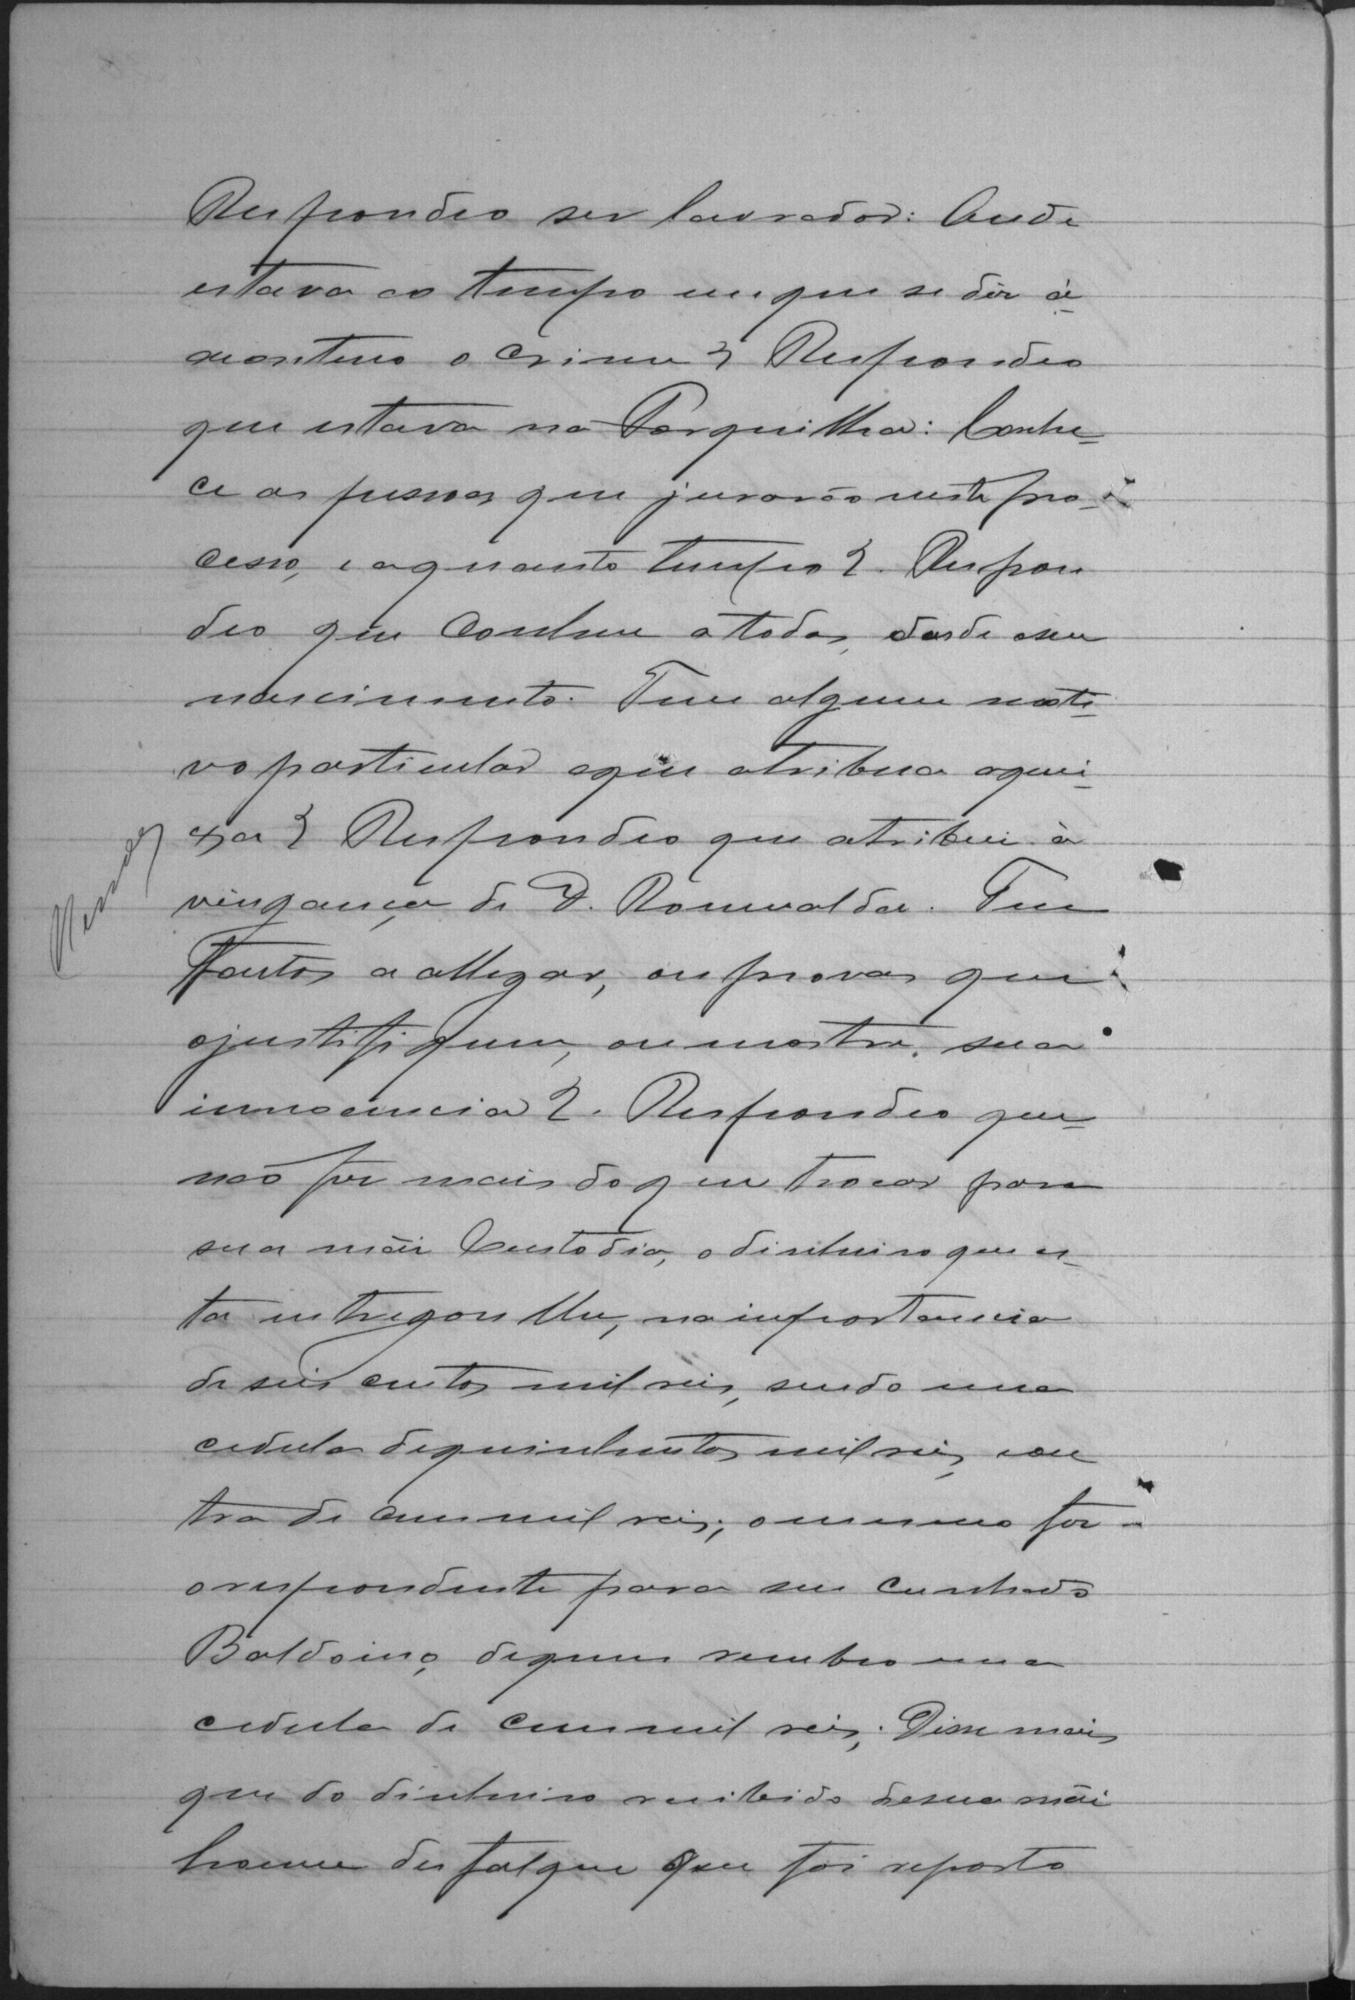 Respondeo ser lavrador: Onde
estava ao tempo em que se diz á
conteceo o crime? Respondeo
que estava na Forquilha: Conhe-
ce as pessoas que jurarão neste pro-
cesso, e aquanto tempo?. Respon
deo que conhece a todas, desde o seu
nascimento. Tem algum moti-
vo particular aque atribua aquei-
xa? Respondeo que atribui á
vingança de D. Romualda. Tem
factos a allegar, ou provas que
ojustifiquem, ou mostre sua
innocencia?. Respondeo que
não fez mais do que trocar para
sua mãi Custodia, o dinheiro que es-
ta entregou lhe, na importancia
de seis centos mil reis, sendo uma
cedula dequinhentos mil reis, e ou
tra de cem mil reis; o mesmo fez
o respondente para seu cunhado
Baldoino, dequem recebeo uma
cedula de cem mil reis; Disse mais
que do dinheiro recibido desua mãi
houve desfalque que foi reposto